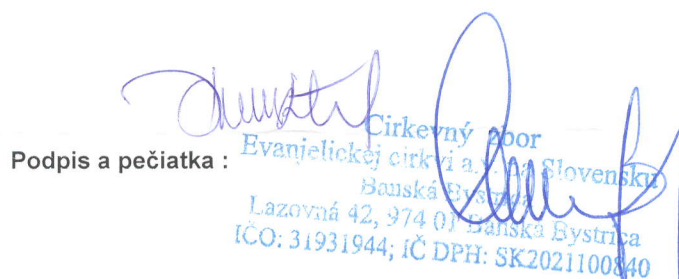 Podpis a pečiatka :
Cirkevný zbor
Evanjelickej cirkvi a.v. na Slovensku
Banská Bystrica
Lazovná 42, 974 01 Banská Bystrica
IČO: 31931944; IČ DPH: SK2021100840